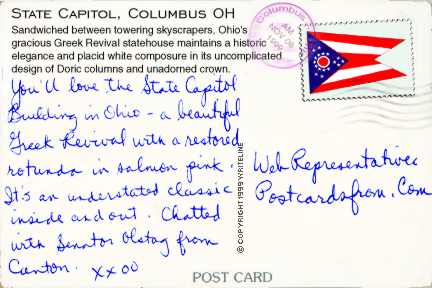 STATE CAPITOL, COLUMBUS OH
Sandwiched between towering skyscrapers, Ohio's
gracious Greek Revival statehouse maintains a historic
elegance and placid white composure in its uncomplicated
design of Doric columns and unadorned crown.
You'll love the State Capitol
Building in Ohio - a beautiful
Greek Revival with a restored
rotunda in salmon pink.
It's an understated classic
inside and out. Chatted
with Senator Olstag from
Canton. xxoo
© COPYRIGHT 1999 WRITELINE
Web Representative
Postcardsfrom.Com
POST CARD
Columbus
AM
NOV 06